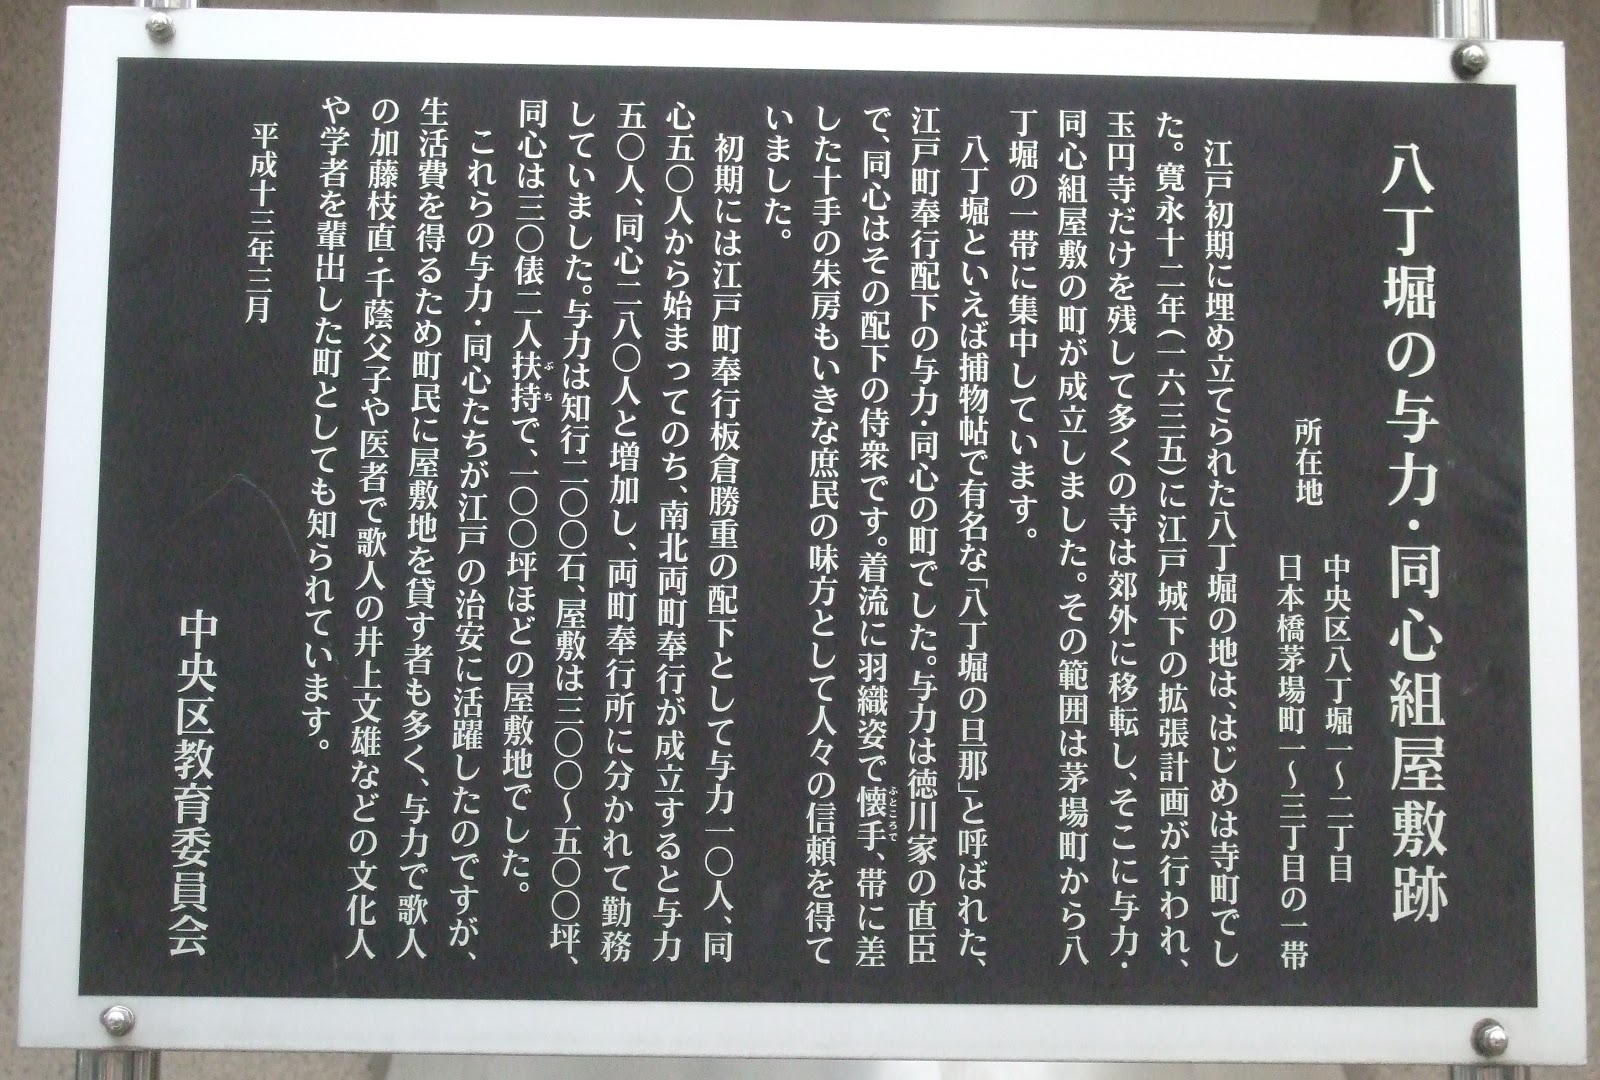 八丁堀の与力・同心組屋敷跡
所在地
中央区八丁堀一～二丁目
日本橋茅場町一～三丁目の一帯
江戸初期に埋め立てられた八丁堀の地は、はじめは寺町でし
た。寛永十二年（一六三五）に江戸城下の拡張計画が行われ、
玉円寺だけを残して多くの寺は郊外に移転し、そこに与力・
同心組屋敷の町が成立しました。その範囲は茅場町から八
丁堀の一帯に集中しています。
八丁堀といえば捕物帖で有名な「八丁堀の旦那」と呼ばれた、
江戸町奉行配下の与力・同心の町でした。与力は徳川家の直臣
で、同心はその配下の侍衆です。着流に羽織姿で懐手、帯に差
ふところで
した十手の朱房もいきな庶民の味方として人々の信頼を得て
いました。
初期には江戸町奉行板倉勝重の配下として与力一〇人、同
心五〇人から始まってのち、南北両町奉行が成立すると与力
五〇人、同心二八〇人と増加し、両町奉行所に分かれて勤務
していました。与力は知行二〇〇石、屋敷は三〇〇～五〇〇坪、
同心は三〇俵二人扶持で、一〇〇坪ほどの屋敷地でした。
ぶち
これらの与力・同心たちが江戸の治安に活躍したのですが、
生活費を得るため町民に屋敷地を貸す者も多く、与力で歌人
の加藤枝直・千蔭父子や医者で歌人の井上文雄などの文化人
や学者を輩出した町としても知られています。
平成十三年三月
中央区教育委員会